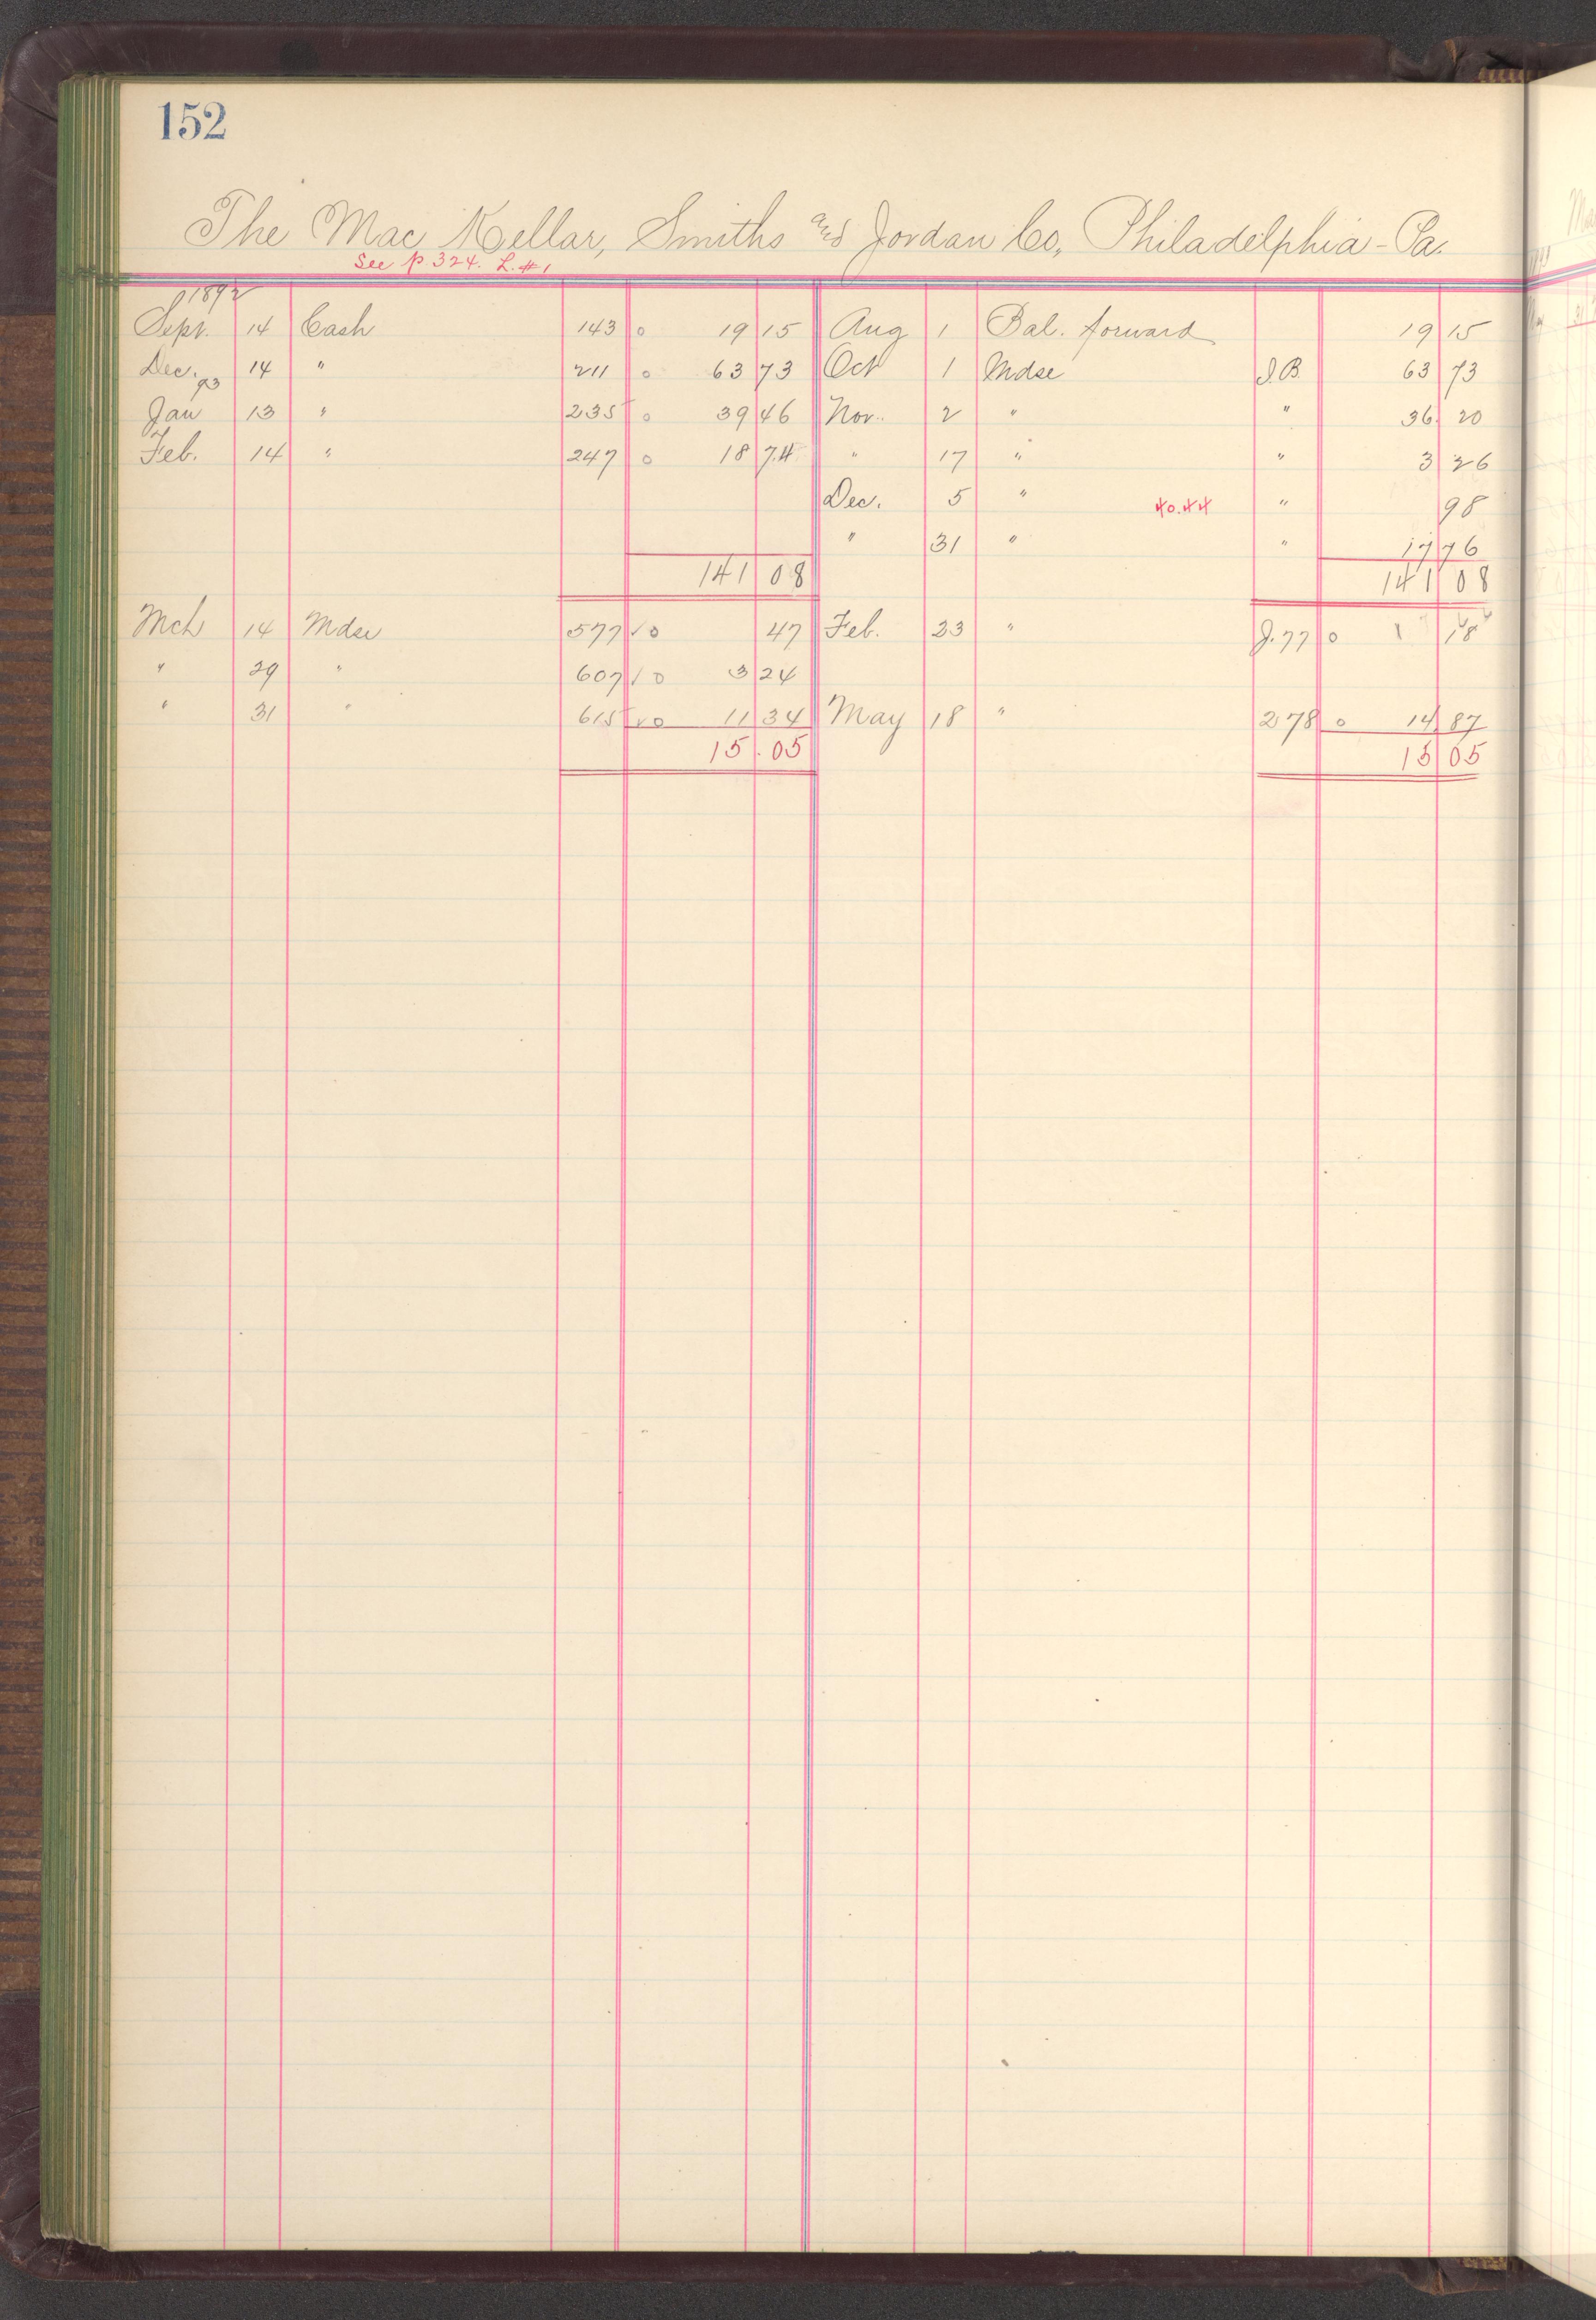 152
The Mac Kellar, Smiths and Jordan Co, Philadelphia - Pa.
See p 324. L. #1
1892
Sept. 14 Cash 143 o 19 15 Aug 1 Bal. forward 19 15
Dec. 14 " 211 o 63 73 Oct 1 Mdse I.B. 63 73
93
Jan 13 " 235 o 39 46 Nov. 2 " " 36. 20
Feb. 14 " 247 o 18 74 " 17 " " 3 26
Dec. 5 " 40.44 " 98
" 31 " " 17 76
141 08 141 08
Mch 14 Mdse 577 o 47 Feb. 23 " J. 77 o 18
" 29 " 607 o 3 24
" 31 " 615 o 11 34 May 18 " 278 o 14 87
15.05 15 05